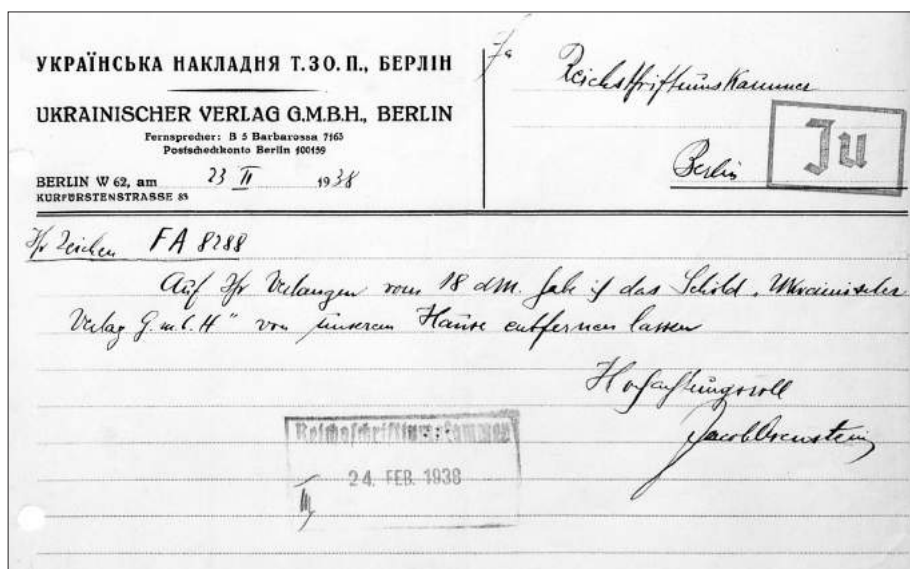 УКРАЇНСЬКА НАКЛАДНЯ Т.ЗО.П., БЕРЛІН
UKRAINISCHER VERLAG G.M.B.H., BERLIN
Fernsprecher: B 5 Barbarossa 7163
Postscheckkonto Berlin 100159
BERLIN W 62, am 23 II 1938
KURFÜRSTENSTRASSE 83
Fa
Reichsschrifttumskammer
Berlin
Ju
Ihr Zeichen FA 8288
Auf Ihr Verlangen vom 18 d.M. habe ich das Schild „Ukrainischer
Verlag G.m.b.H" von unserem Hause entfernen lassen
Hochachtungsvoll
Jacob Orenstein
Reichsschrifttumskammer
24. FEB. 1938